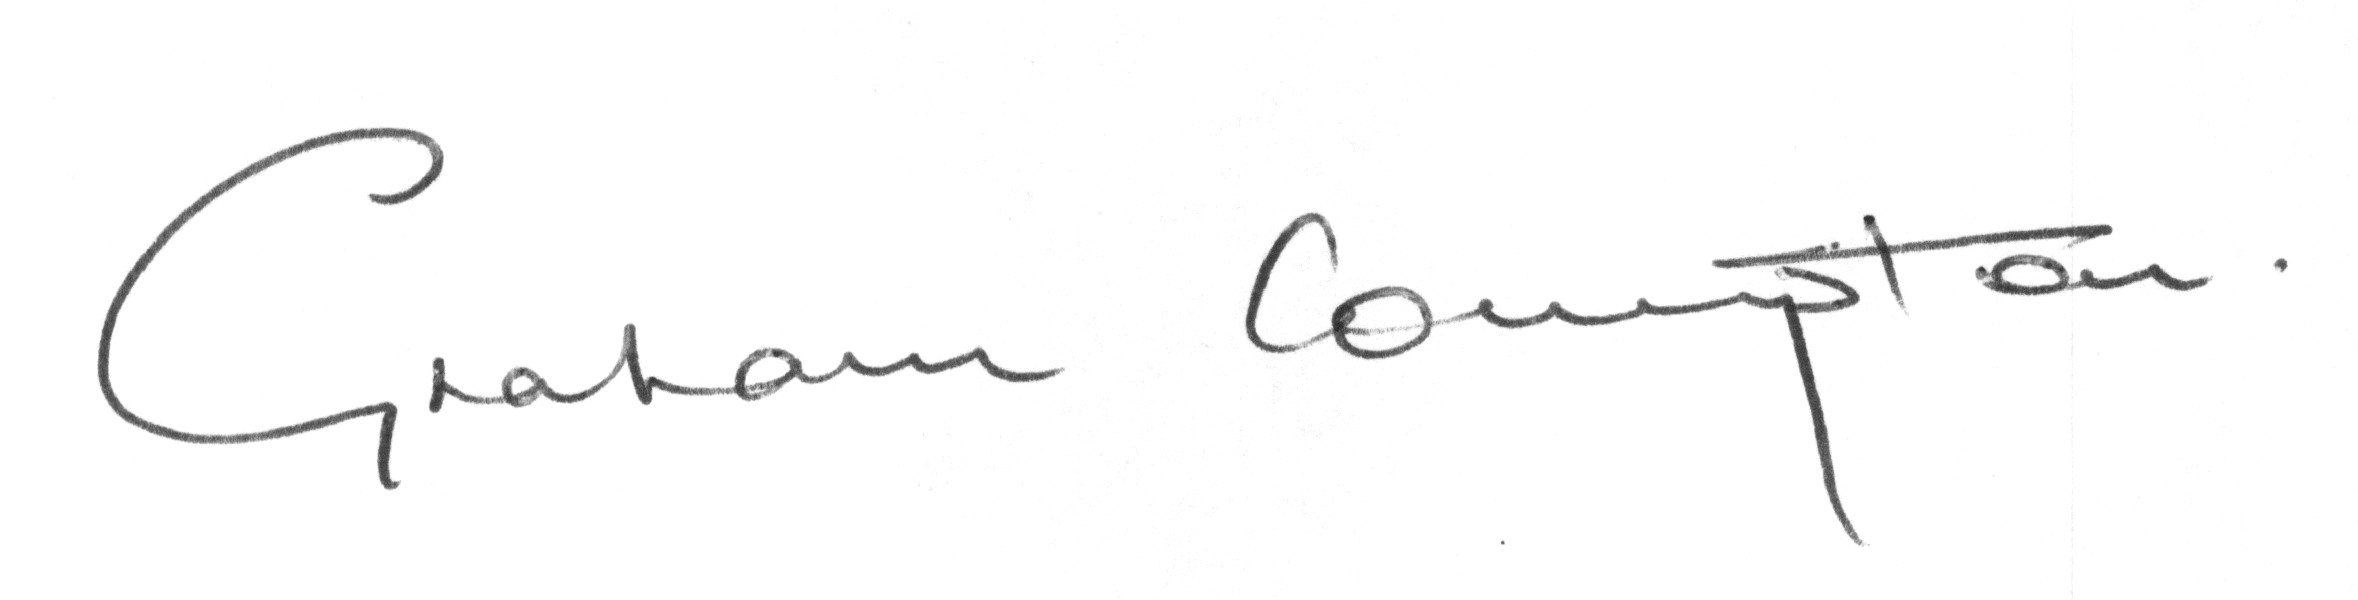 Graham Compton.